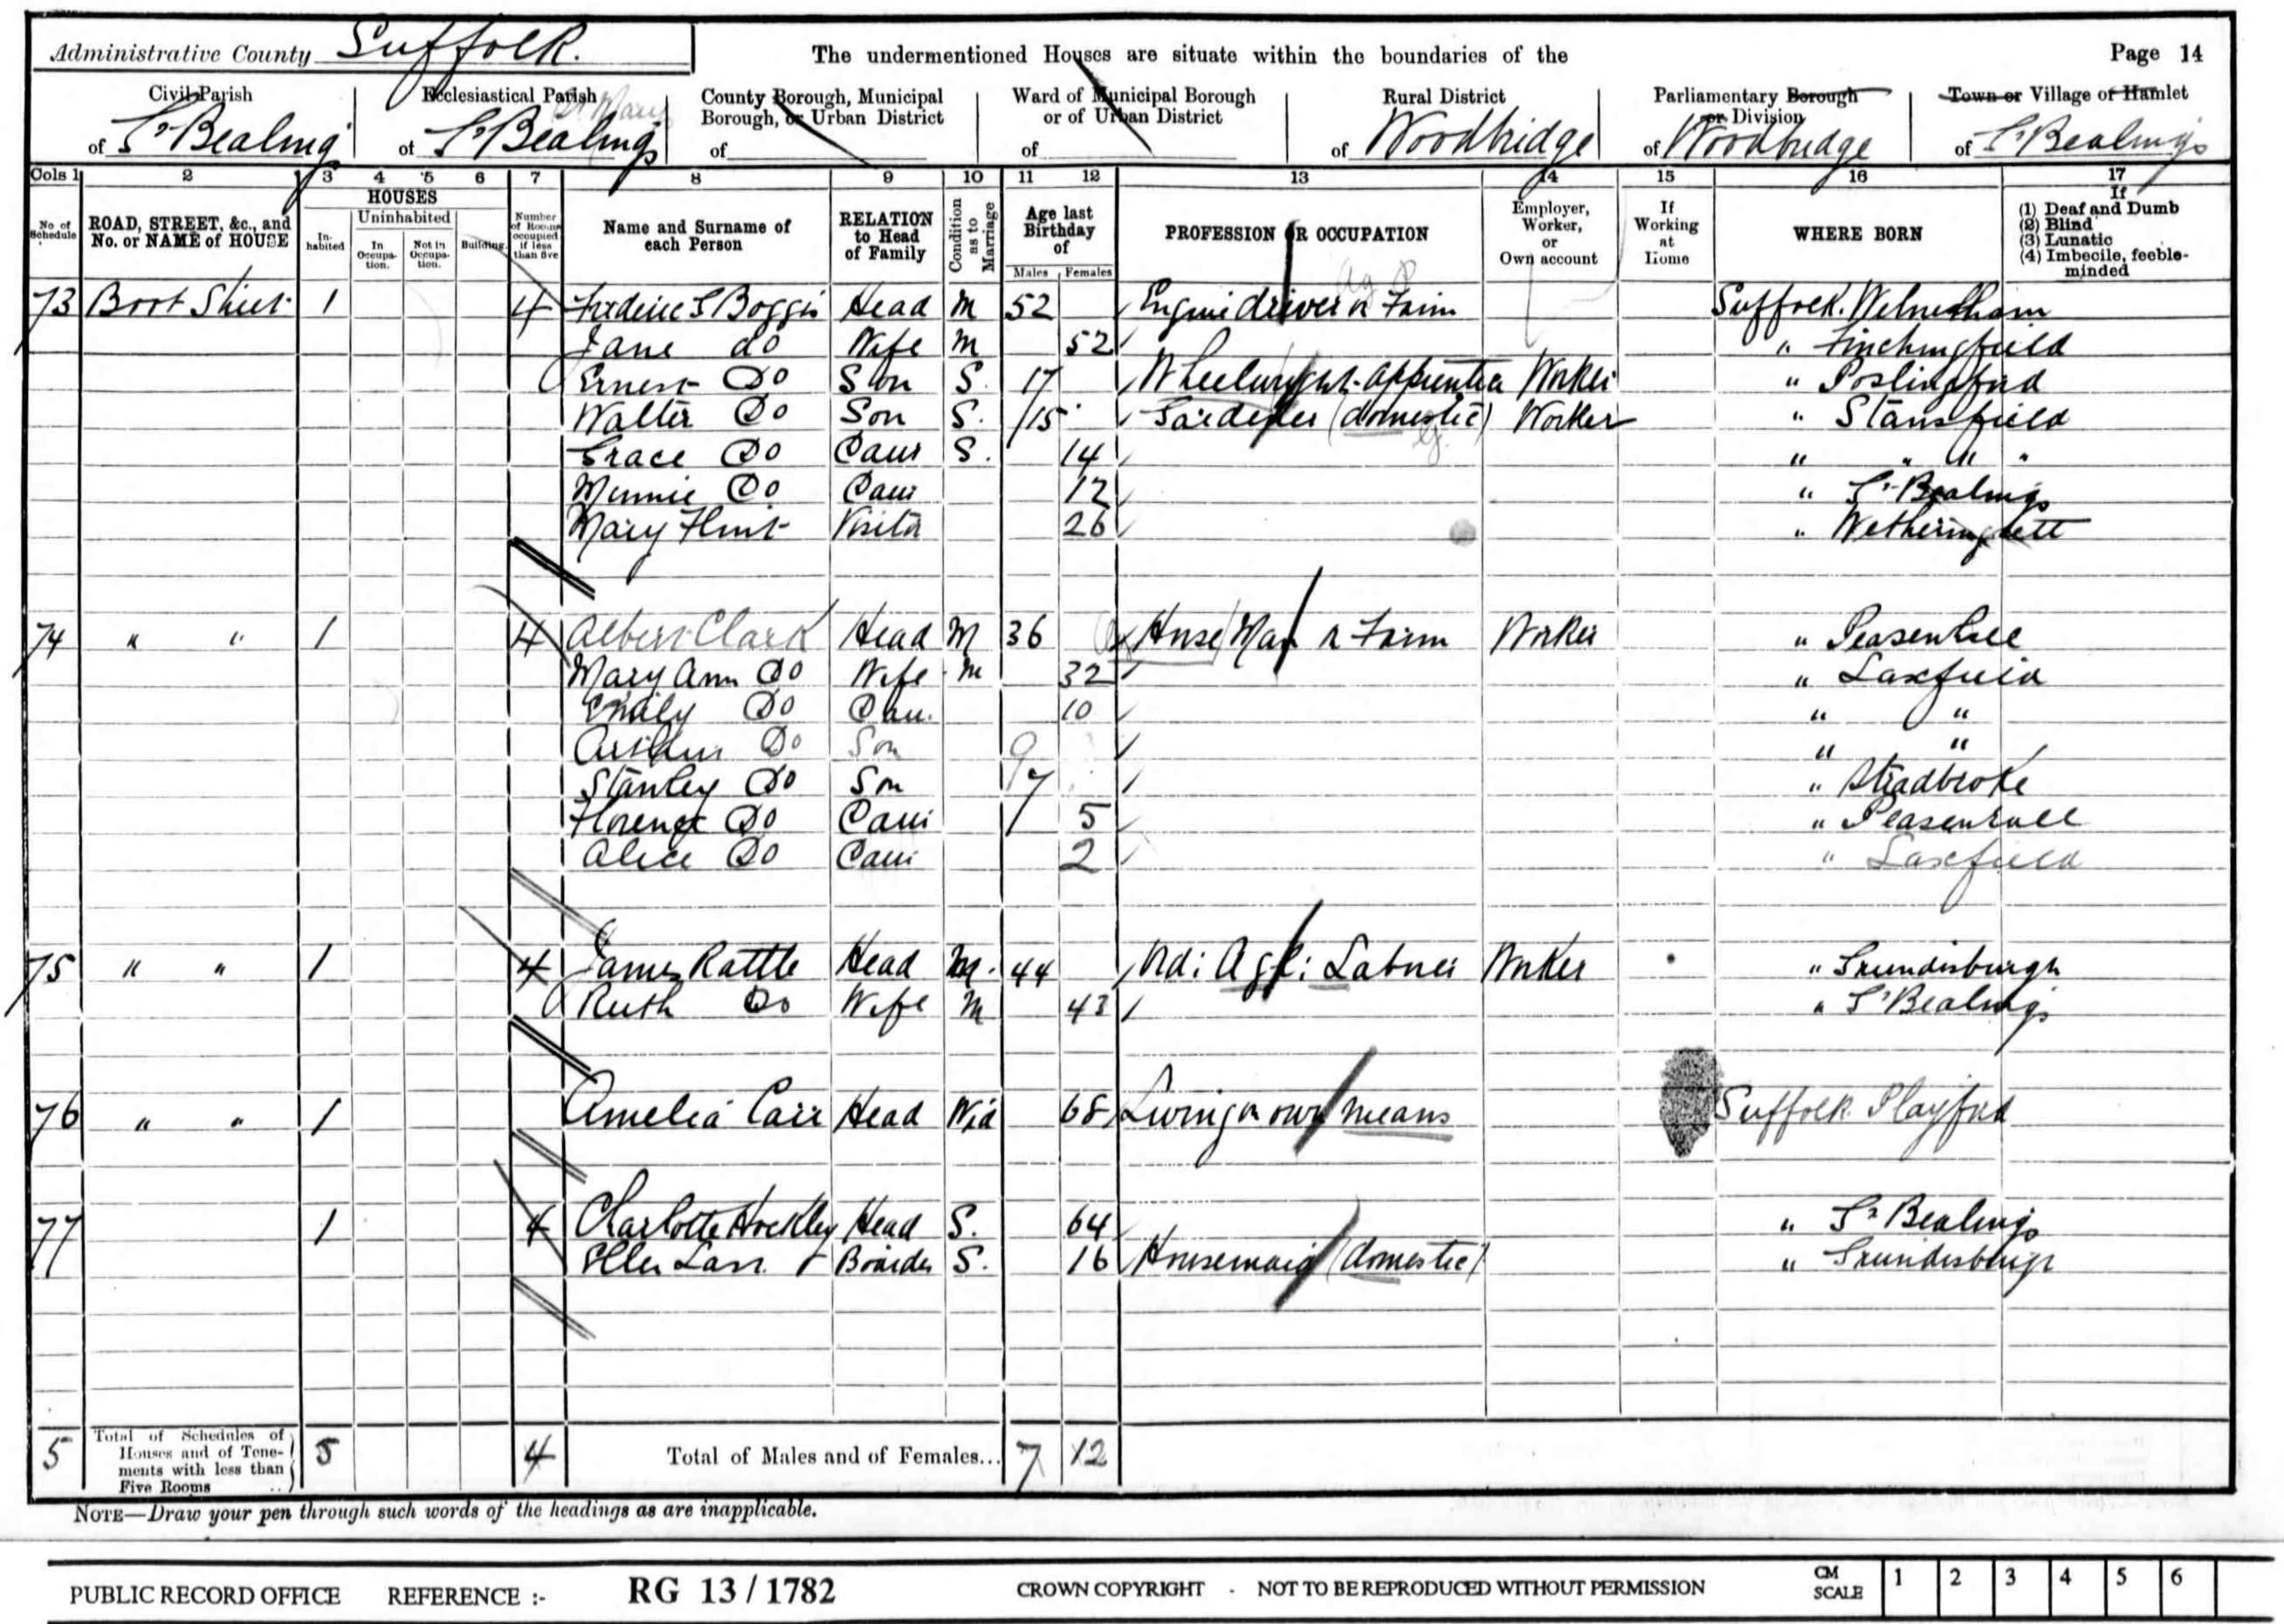 Administrative County Suffolk. The undermentioned Houses are situate within the boundaries of the Page 14
Civil Parish Ecclesiastical Parish County Borough, Municipal Borough, or Urban District Ward of Municipal Borough or of Urban District Rural District Parliamentary Borough or Division Town or Village or Hamlet
of Gt Bealings of St Mary Gt Bealings of of of Woodbridge of Woodbridge of Gt Bealings
Cols 1 2 3 4 5 6 7 8 9 10 11 12 13 14 15 16 17
No of Schedule ROAD, STREET, &c., and No. or NAME of HOUSE HOUSES Inhabited Uninhabited In Occupation. Not in Occupation. Building. Number of Rooms occupied if less than five Name and Surname of each Person RELATION to Head of Family Condition as to Marriage Age last Birthday of Males Females PROFESSION OR OCCUPATION Employer, Worker, or Own account If Working at Home WHERE BORN If (1) Deaf and Dumb (2) Blind (3) Lunatic (4) Imbecile, feeble-minded
73 Boot Street 1 4 Frederic S Boggis Head M 52 Engine driver on Farm Suffolk.
Jane do Wife M 52 " Finchingfield
Ernest Do Son S. 17 Wheelwright apprentice Worker " Poslingford
Walter Do Son S. 15 Gardener (domestic) Worker " Stansfield
Grace Do Daur S. 14 " " " "
Minnie Do Daur 12 " Gt Bealings
Mary Flint Visitor 26 " Wetheringsett
74 " " 1 4 Albert Clark Head M 36 Horse Man on Farm Worker " Peasenhall
Mary Ann Do Wife M 32 " Laxfield
Emily Do Dau. 10 " "
Arthur Do Son 9 " "
Stanley Do Son 7 " Stradbroke
Florence Do Daur 5 " Peasenhall
Alice Do Daur 2 " Laxfield
75 " " 1 4 James Rattle Head M. 44 Ord: Agl: Labourer Worker " Grundisburgh
Ruth Do Wife M 43 " Gt Bealings
76 " " 1 Amelia Carr Head Wid 68 Living on own means Suffolk Playford
77 1 4 Charlotte Hockley Head S. 64 " Gt Bealings
Ellen Boarder S. 16 Housemaid (domestic) " Grundisburgh
5 Total of Schedules of Houses and of Tenements with less than Five Rooms .. 5 4 Total of Males and of Females... 7 12
NOTE—Draw your pen through such words of the headings as are inapplicable.
PUBLIC RECORD OFFICE REFERENCE :- RG 13 / 1782 CROWN COPYRIGHT - NOT TO BE REPRODUCED WITHOUT PERMISSION CM SCALE 1 2 3 4 5 6